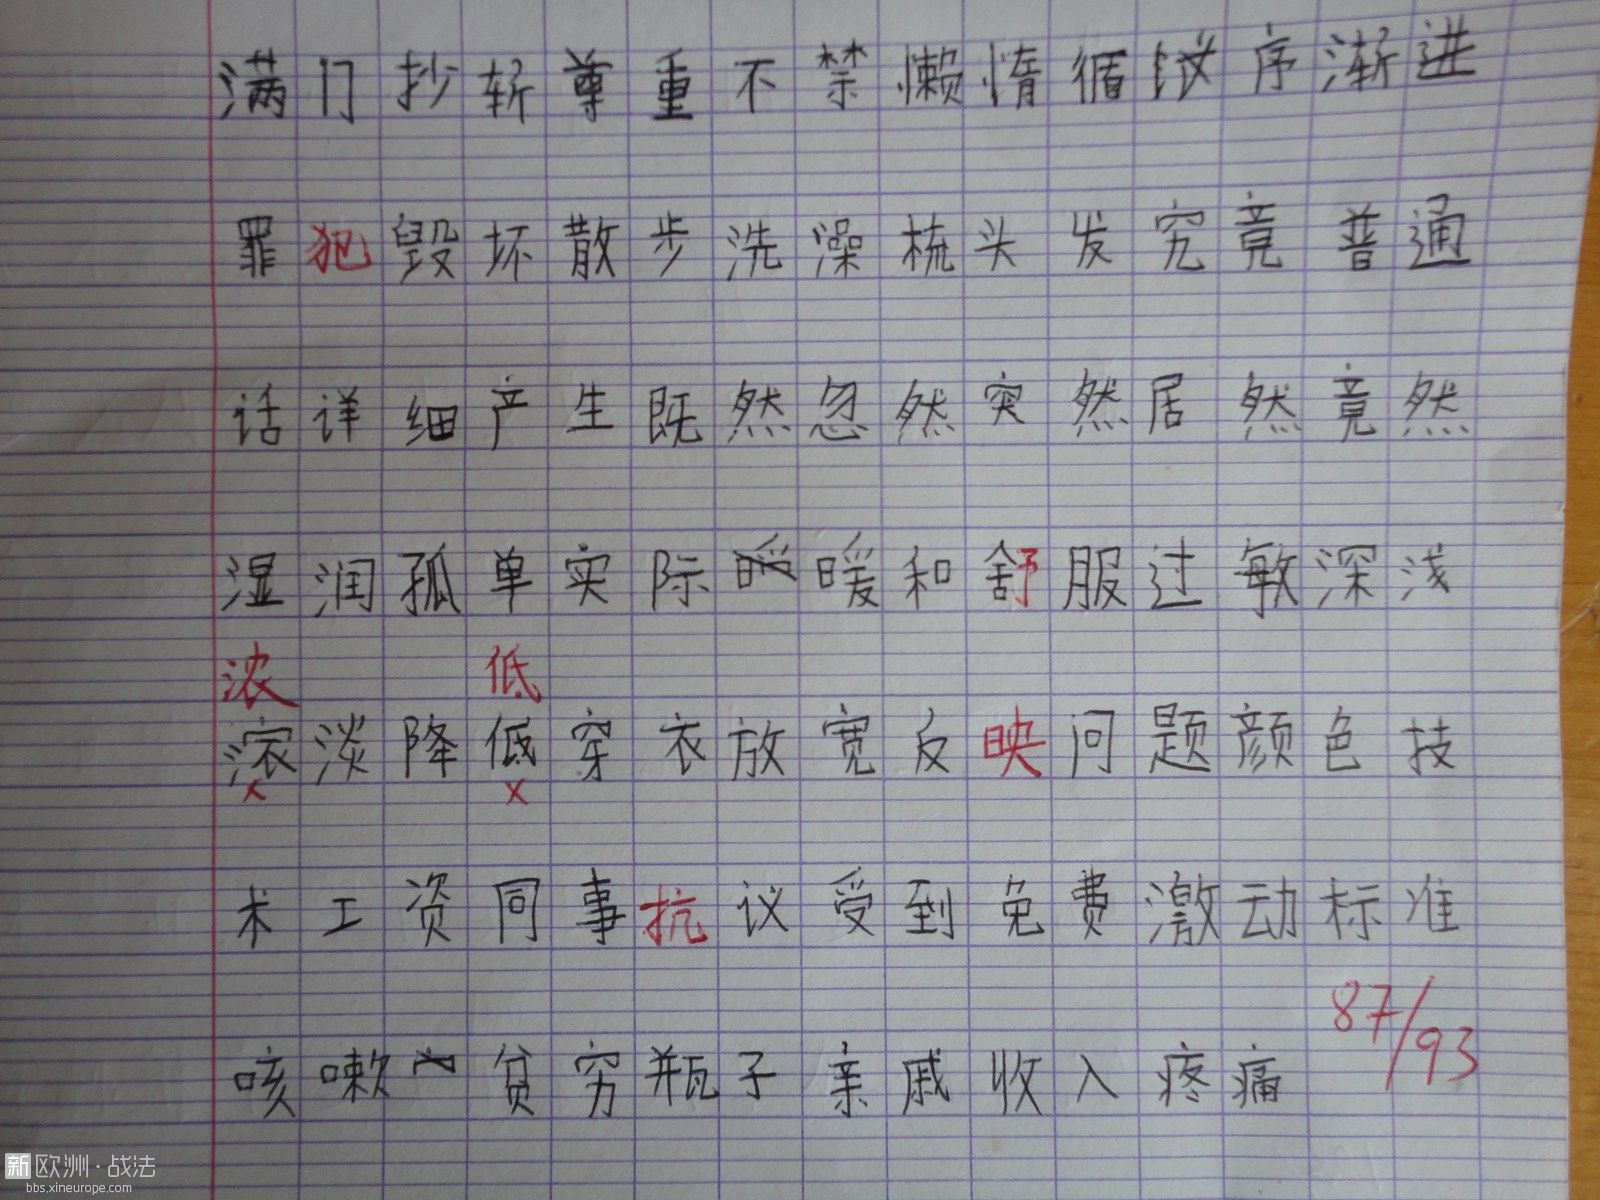 满门抄斩尊重不禁懒惰循序渐进
罪犯毁坏散步洗澡梳头发究竟普通
话详细产生既然忽然突然居然竟然
湿润孤单实际暖和舒服过敏深浅
浓 低
滚淡降低穿衣放宽反映问题颜色技
术工资同事抗议受到免费激动标准
87/93
咳嗽贫穷瓶子亲戚收入疼痛
新欧洲·战法
bbs.xineurope.com